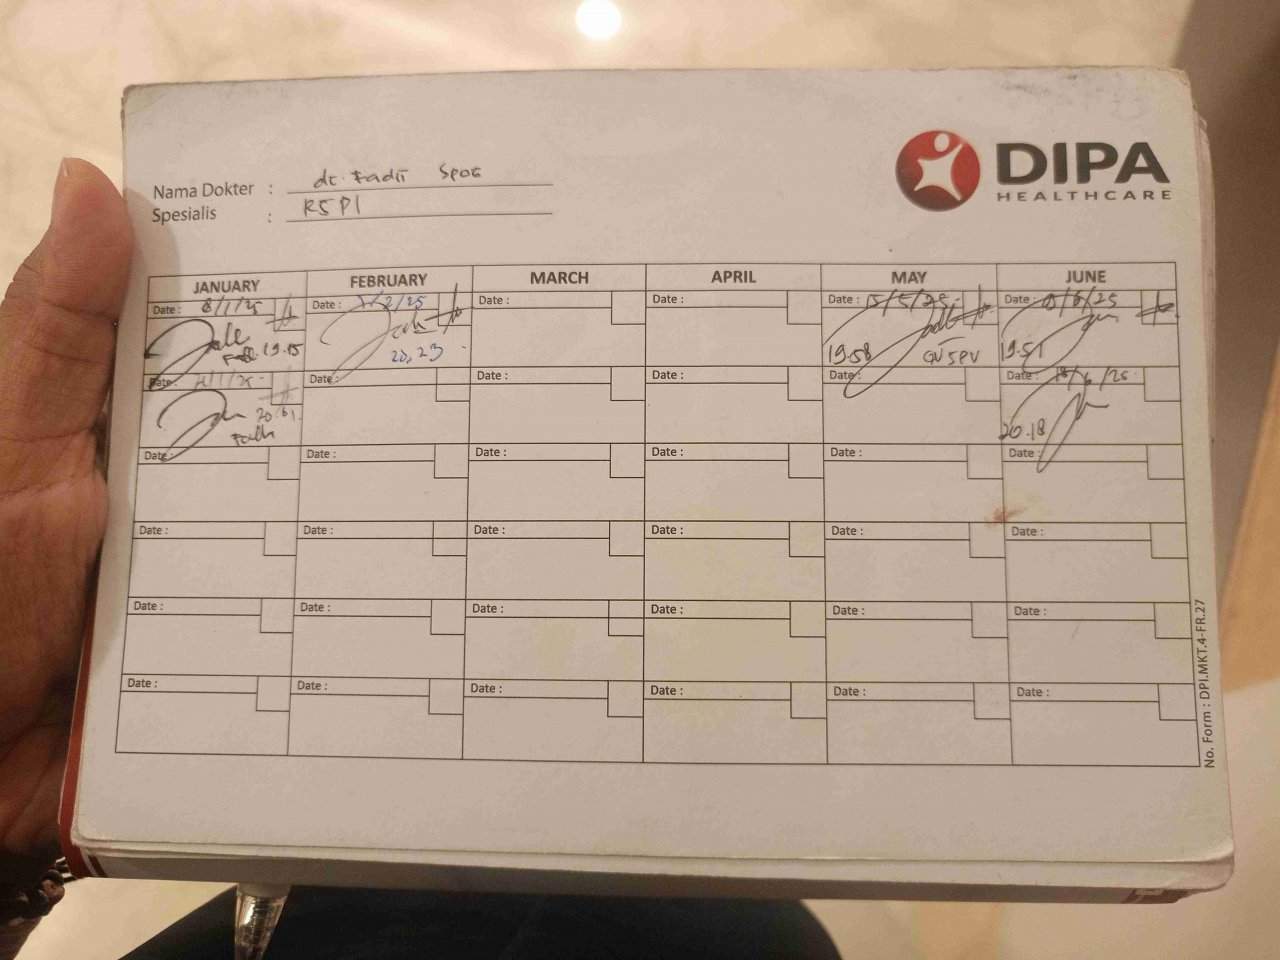 DIPA
HEALTHCARE
Nama Dokter : dr. Fadli SpOG
Spesialis : RSPI
JANUARY FEBRUARY MARCH APRIL MAY JUNE
Date : 8/1/25 Date : /2/25 Date : Date : Date : 15/5/25 Date : /6/25
Fadli 19.15 20,23 19.58 19.51
Date : /1/25 Date : Date : Date : Date : Date : 18/6/25
Fadli 20.18
Date : Date : Date : Date : Date : Date :
Date : Date : Date : Date : Date : Date :
Date : Date : Date : Date : Date : Date :
Date : Date : Date : Date : Date : Date :
No. Form : DPI.MKT.4-FR.27